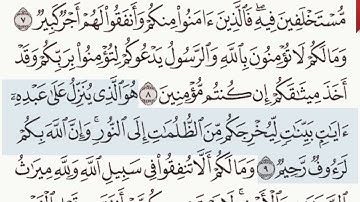 مُّسْتَخْلَفِينَ فِيهِ ۖ فَٱلَّذِينَ ءَامَنُوا۟ مِنكُمْ وَأَنفَقُوا۟ لَهُمْ أَجْرٌ كَبِيرٌ ٧
وَمَا لَكُمْ لَا تُؤْمِنُونَ بِٱللَّهِ ۙ وَٱلرَّسُولُ يَدْعُوكُمْ لِتُؤْمِنُوا۟ بِرَبِّكُمْ وَقَدْ
أَخَذَ مِيثَٰقَكُمْ إِن كُنتُم مُّؤْمِنِينَ ٨ هُوَ ٱلَّذِى يُنَزِّلُ عَلَىٰ عَبْدِهِۦٓ
ءَايَٰتٍۭ بَيِّنَٰتٍ لِّيُخْرِجَكُم مِّنَ ٱلظُّلُمَٰتِ إِلَى ٱلنُّورِ ۚ وَإِنَّ ٱللَّهَ بِكُمْ
لَرَءُوفٌ رَّحِيمٌ ٩ وَمَا لَكُمْ أَلَّا تُنفِقُوا۟ فِى سَبِيلِ ٱللَّهِ وَلِلَّهِ مِيرَٰثُ